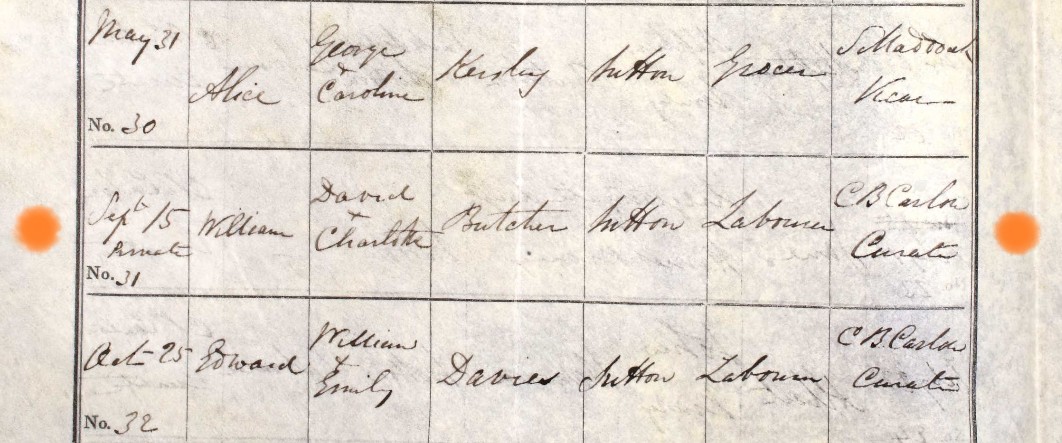 May 31
No. 30
Alice
George
&
Caroline
Kersley
Sutton
Grocer
S Maddock
Vicar
Septr 15
Private
No. 31
William
David
&
Charlotte
Butcher
Sutton
Labourer
C B Carlon
Curate
Oct 25
No. 32
Edward
William
&
Emily
Davies
Sutton
Labourer
C B Carlon
Curate